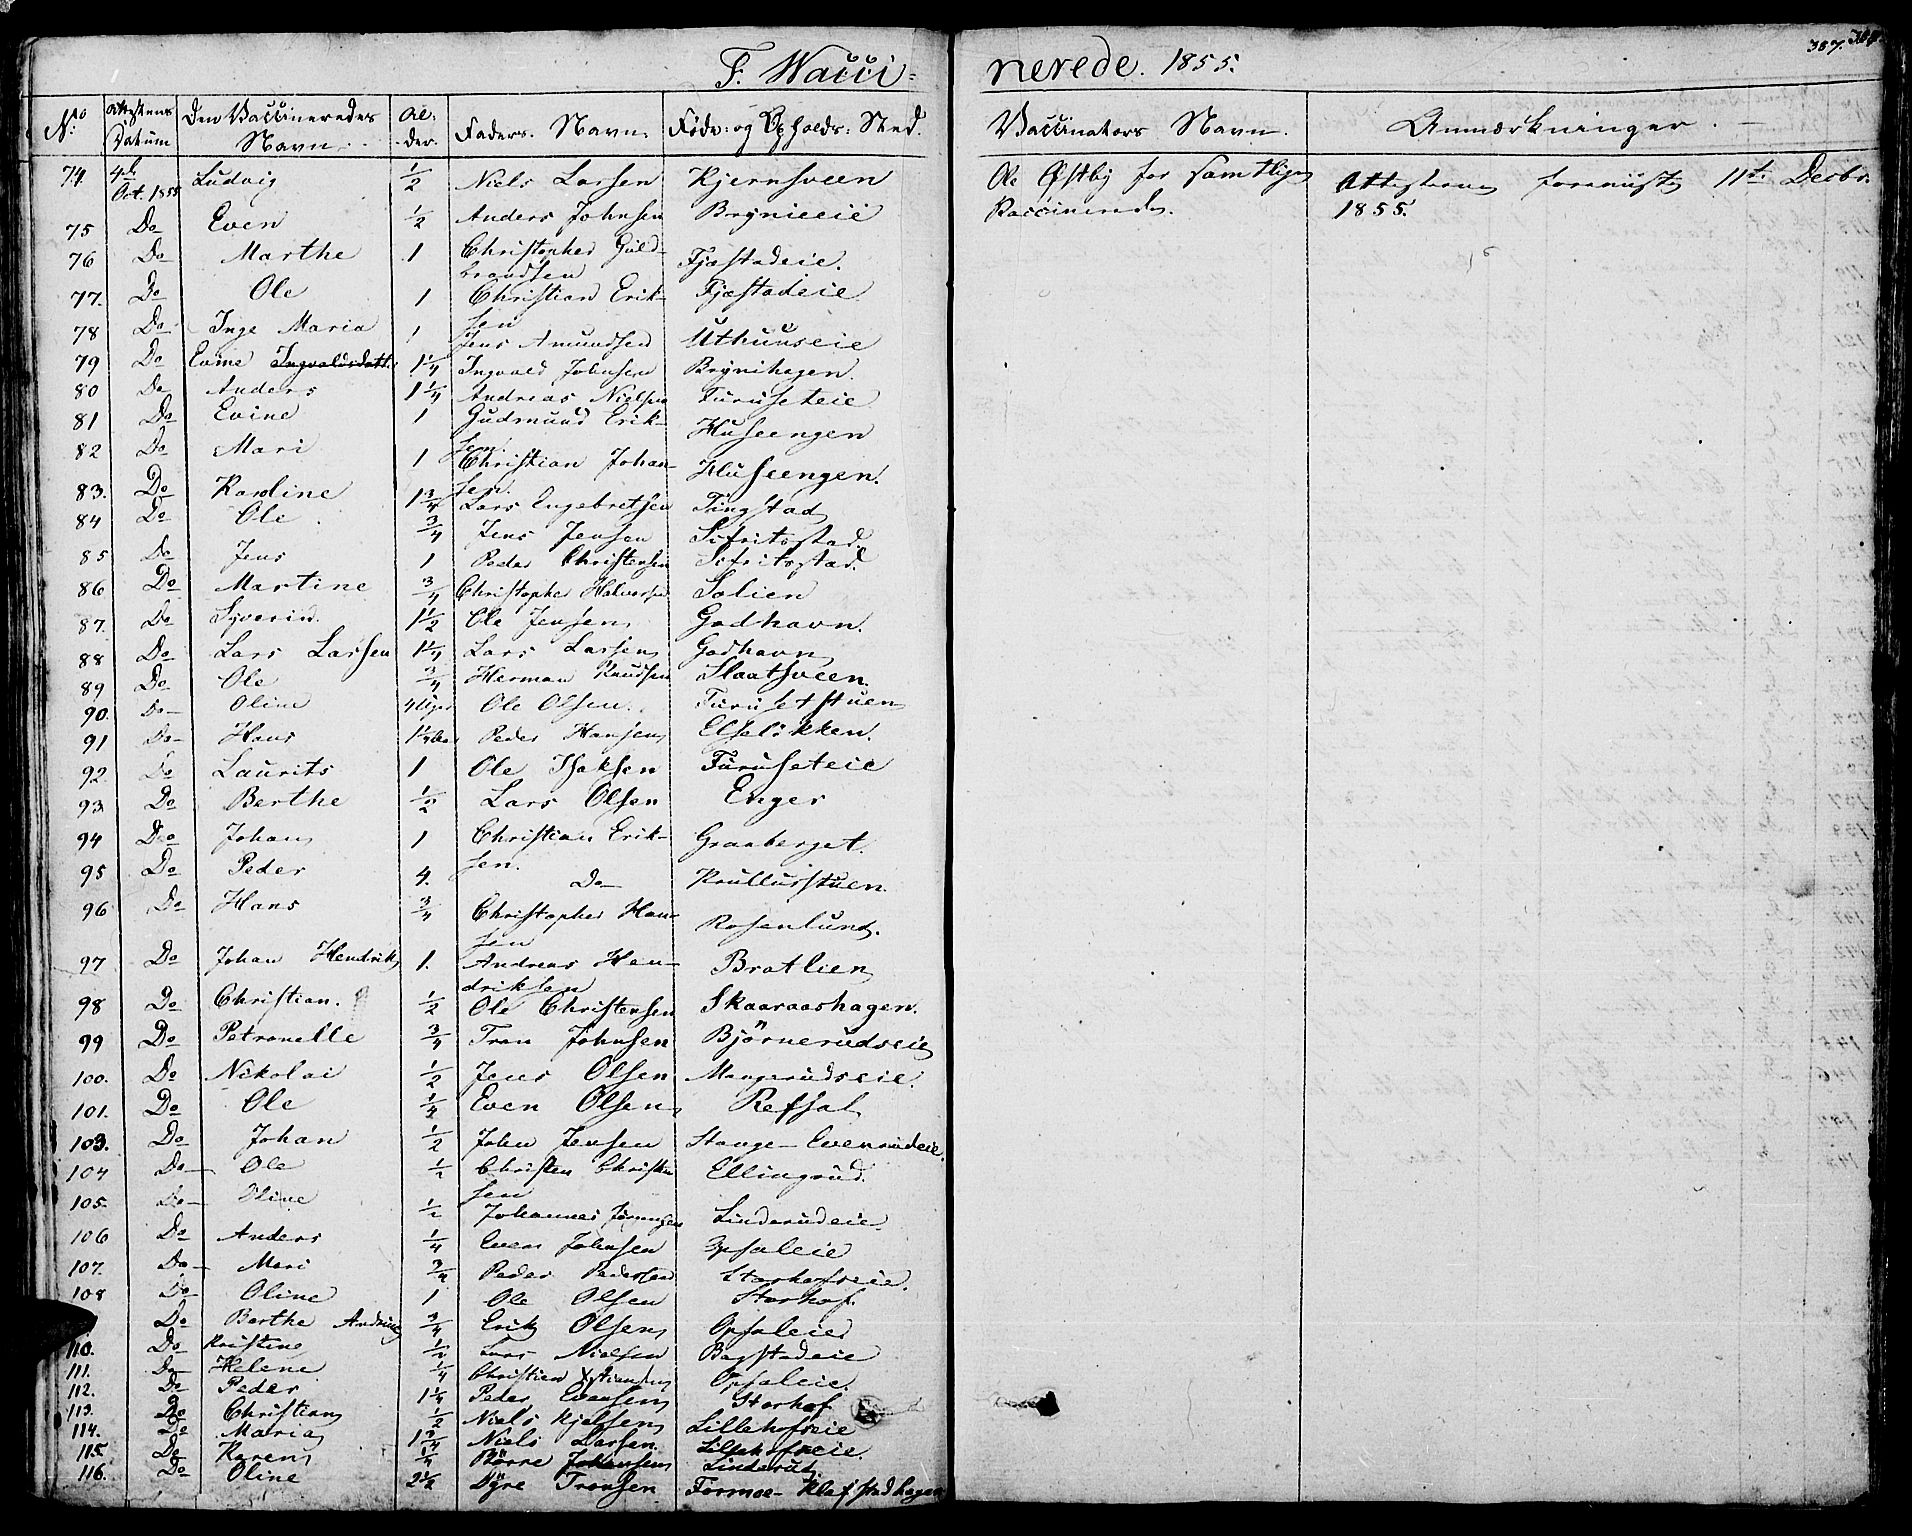 F. Wacci-
nerede. 1855.
357.
No. Attestens Datum Den Vaccineredes Navn. Al-der. Faders Navn. Føde- og Opholds-Sted. Vaccinators Navn. Anmærkninger.
74 4de Oct. 1855 Ludvig 1/2 Niels Larsen Kjernsveen Ole Østby for samtlige Attesterne 11te Decbr.
Vaccinerede. 1855.
75 Do Even 1/2 Anders Johnsen Brynieeie
76 Do Marthe 1 Christopher Guld-
brandsen Fjæstadeie.
77. Do Ole 1 Christian Erik-
sen Fjæstadeie
78 Do Inge Maria 1 Jens Amundsen Uthuuseie
79 Do Evine Ingvaldsdatt. 1 1/4 Ingvald Johnsen Brynihagen.
80 Do Anders 1 1/4 Andreas Nielsen Furuseteie
81 Do Evine 1 Gudmund Erik-
sen Huseengen
82 Do Mari 1 Christian Johan-
sen. Huseengen.
83. Do Karoline 1 3/4 Lars Engebretsen Tingstad
84 Do Ole 3/4 Jens Jensen Sifritsstad
85 Do Jens 1 Peder Christensen Sifritsstad.
86 Do Martine 3/4 Christopher Halvorsen Solien
87. Do Syverin. 1 1/2 Ole Jensen Godhavn.
88 Do Lars Larsen 1 1/4 Lars Larsen Godhavn
89 Do Ole 3/4 Herman Knudsen Slaatsveen.
90. Do Oline 4 Uger Ole Olsen. Furusetstuen
91 Do Hans 1 1/4 Aar Peder Hansen Elseløkken.
92. Do Laurits 1 Ole Isaksen Furuseteie
93 Do Berthe 1/2 Lars Olsen Enger
94 Do Johan 1 Christian Erik-
sen. Graaberget.
95 Do Peder 4. Do Krullusstuen.
96 Do Hans 3/4 Christopher Han-
sen Rosenlund.
97 Do Johan Hendrik 1. Andreas Hen-
driksen Bratlien
98 Do Christian. 1/2 Ole Christensen Skaaraashagen.
99 Do Petronelle 3/4 Tron Johnsen Bjørnerudseie
100. Do Nikolai 1/2 Jens Olsen Mangerudseie.
101. Do Ole 1/4 Even Olsen Refsal
103. Do Johan 1/2 John Jensen Stange- Evenrudeie.
104 Do Ole 1/2 Christen Christen
sen Ellingrud.
105. Do Oline 1/2 Johannes Linderudeie
106 Do Anders 1/4 Even Johnsen Opsaleie
107. Do Mari 3/4 Peder Pedersen Storhofseie.
108 Do Oline 1 Ole Olsen Storhof.
Do Berthe Andrine 3/4 Erik Olsen Opsaleie
110. Do Kristine 1/2 Lars Nielsen Bagstadeie
111. Do Helene 1/4 Christian Xstiansen Opsaleie.
112. Do Peder 1 1/4 Peder Evensen Storhof
113. Do Christian 1/2 Niels Kjelsen Lillehofseie
114. Do Maria 1 3/4 Niels Larsen Lillehofseie.
115. Do Karen 1/4 Børre Johansen Linderud
116. Do Oline 2 1/2 Dyre Tronsen Formoe- Klafstadhagen